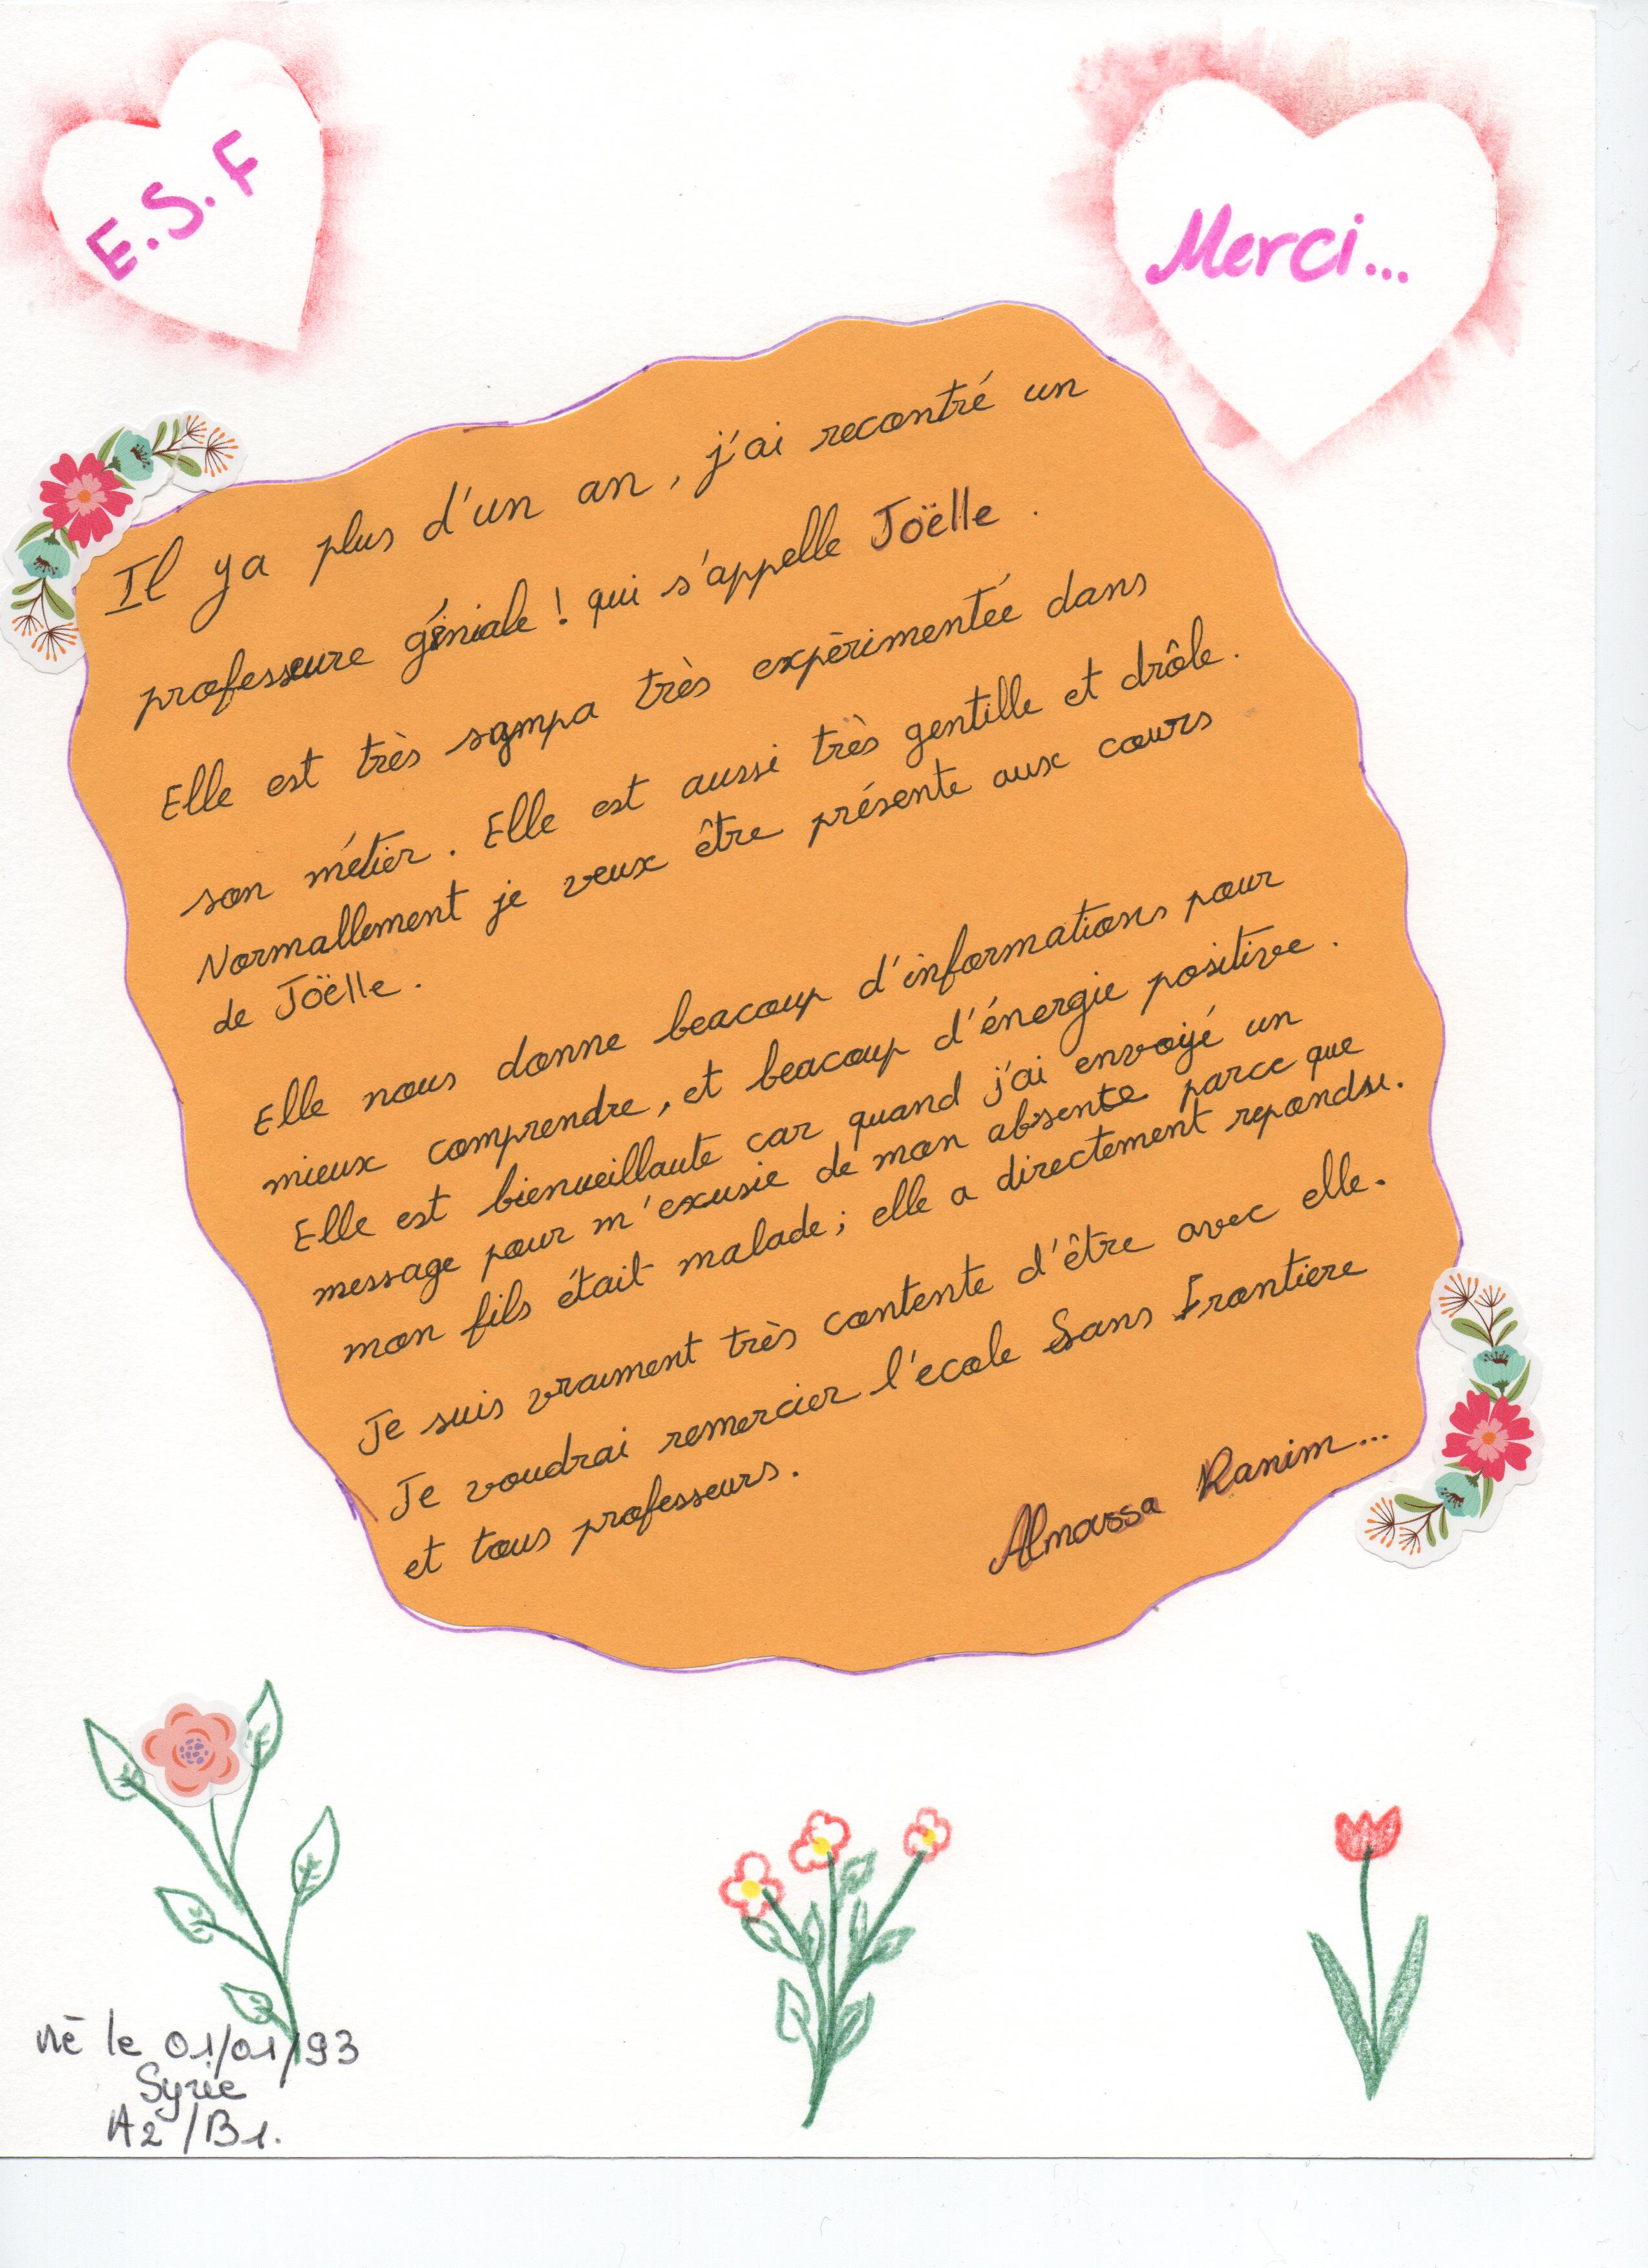 E.S.F
Merci...
Il ya plus d'un an, j'ai recontré un
professeure géniale ! qui s'appelle Joëlle .
Elle est très sympa très expèrimentée dans
son métier. Elle est aussi très gentille et drôle.
Normallement je veux être présente aux cours
de Joëlle.
Elle nous donne beacoup d'informations pour
mieux comprendre, et beacoup d'énergie positive.
Elle est bienveillaute car quand j'ai envoyé un
message pour m'exusie de mon absente parce que
mon fils était malade; elle a directement repondu.
Je suis vraiment très contente d'être avec elle.
Je voudrai remercier l'ecole Sans Frontiere
et tous professeurs.
Almoussa Ranim...
Nè le 01/01/93
Syrie
A2/B1.